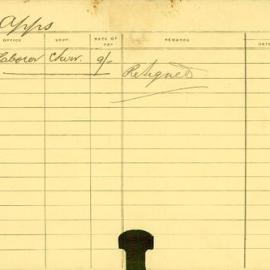 Apps
OFFICE DEPT. RATE OF PAY REMARKS DATE
Laborer 9/- Resigned